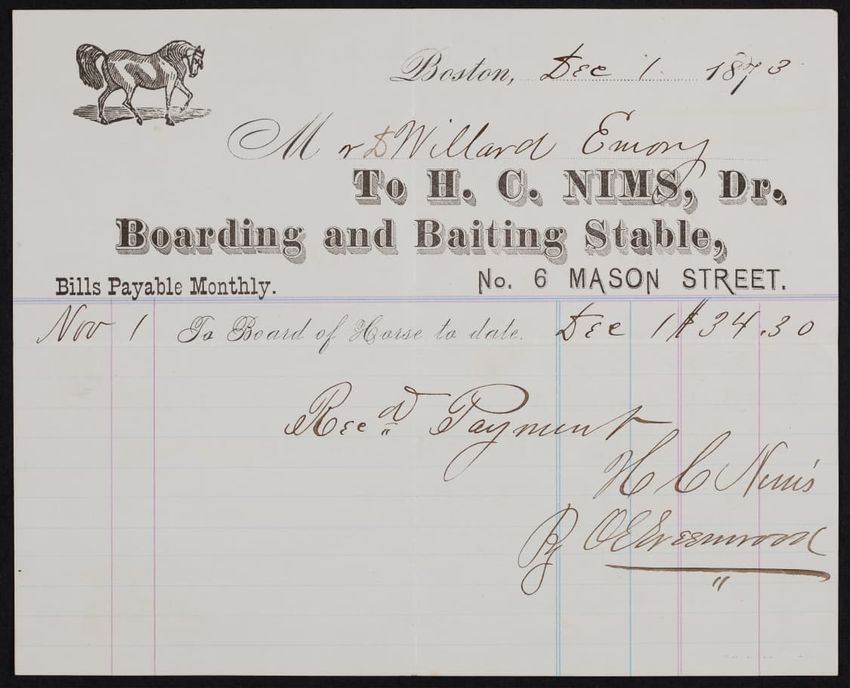 Boston, Dec 1 1873
Mr D Willard Emory
To H. C. NIMS, Dr.
Boarding and Baiting Stable,
Bills Payable Monthly. No. 6 MASON STREET.
Nov 1 To Board of Horse to date. Dec 1 $34.30
Rec'd Payment
H C Nims
By O E Greenwood